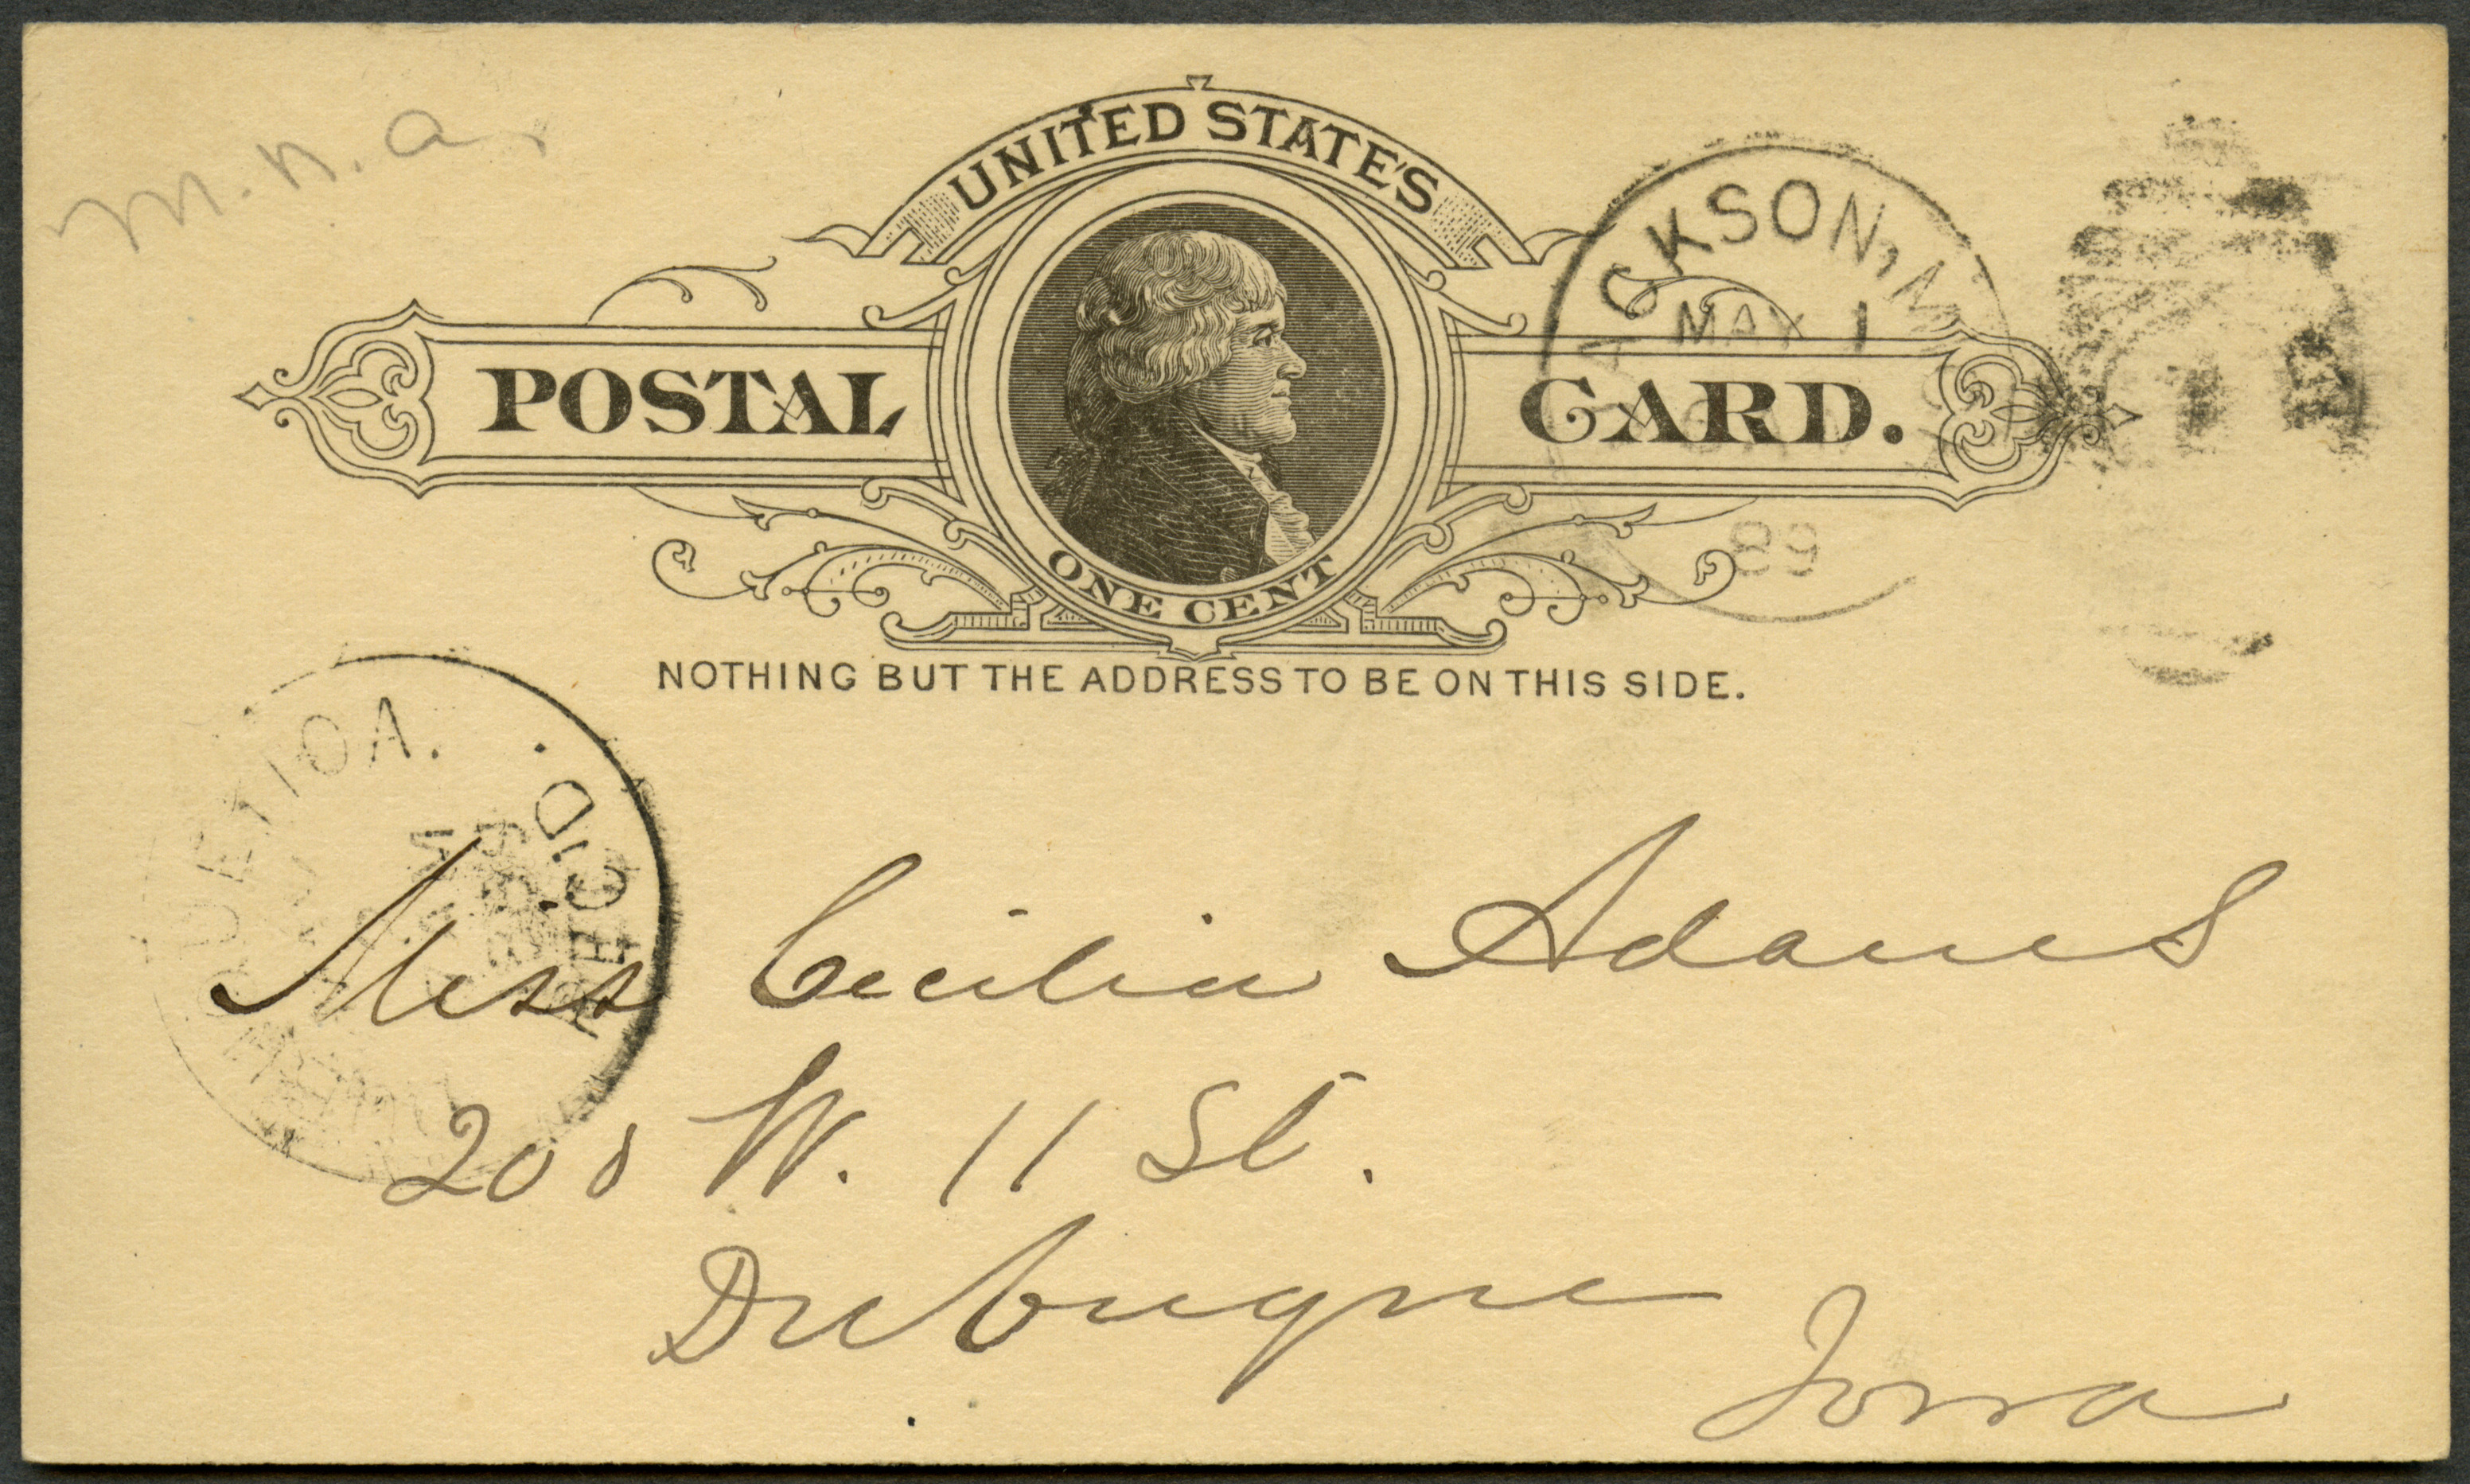 m. n. a.
UNITED STATE'S
POSTAL CARD.
ONE CENT
JACKSON, M
MAY 1
89
NOTHING BUT THE ADDRESS TO BE ON THIS SIDE.
UE, IOA.
REC'D.
Miss Cecilia Adams
208 W. 11 St.
Dubuque
Iowa